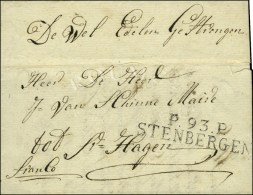 De Wel Edelen Gestrengen
Heer De Heer
J: Van Schinne Maire
tot St: Hagen
franco
P.93.P.
STENBERGEN